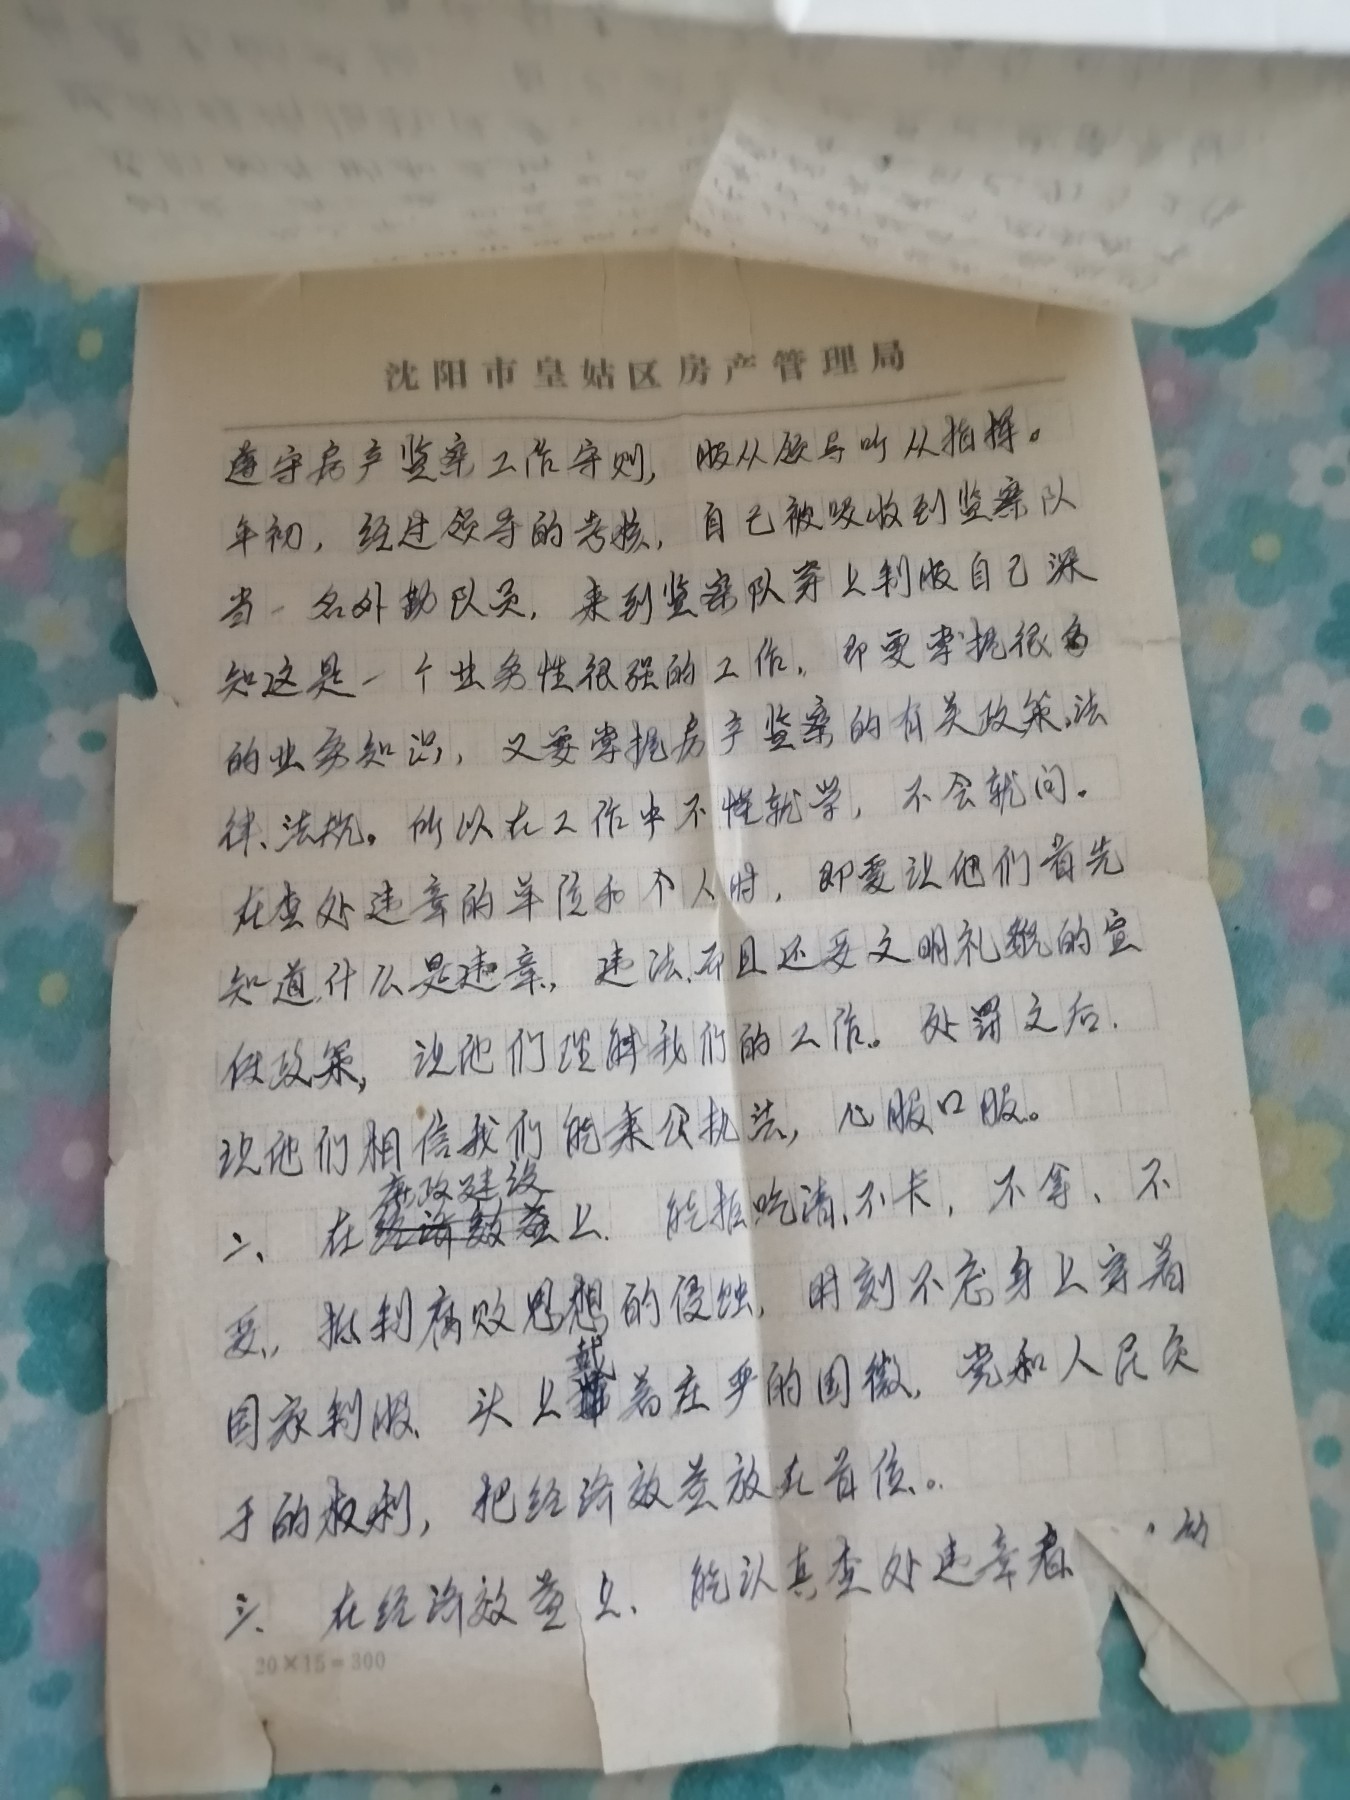 沈阳市皇姑区房产管理局
遵守房产监察工作守则，服从领导听从指挥。
年初，经过领导的考核，自己被吸收到监察队
当一名外勤队员，来到监察队穿上制服自己深
知这是一个业务性很强的工作，即要掌握很多
的业务知识，又要掌握房产监察的有关政策、法
律、法规。所以在工作中不懂就学，不会就问。
在查处违章的单位和个人时，即要让他们首先
知道什么是违章、违法、而且还要文明礼貌的宣
传政策，让他们理解我们的工作。处罚之后，
让他们相信我们能秉公执法，心服口服。
廉政建设
二、在经济效益上、能拒吃请、不卡，不拿、不
要、抵制腐败思想的侵蚀，时刻不忘身上穿着
戴
国家制服、头上着庄严的国徽，党和人民交
于的权利，把经济效益放在首位。
三、在经济效益上、能认真查处违章者
20×15=300